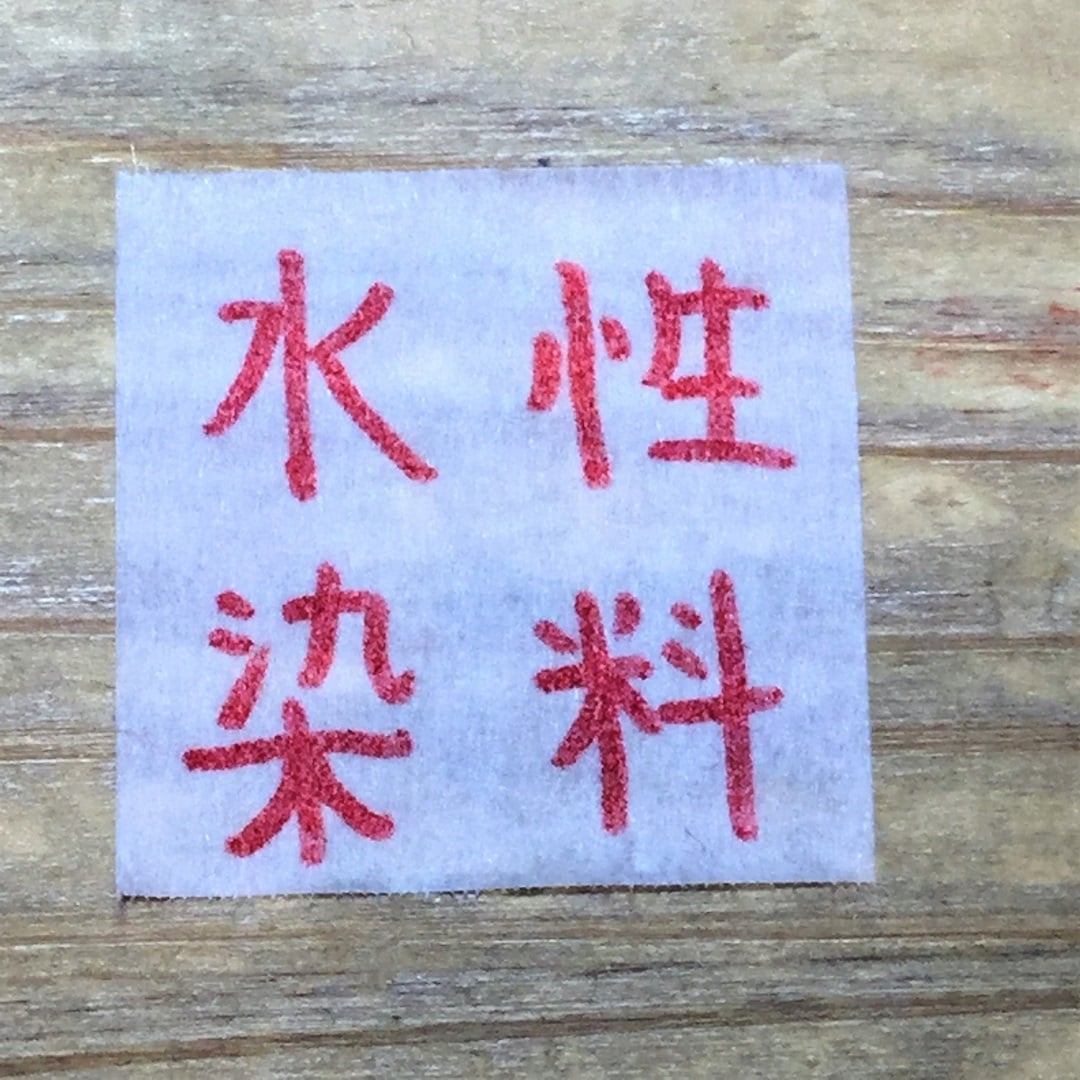 水性
染料